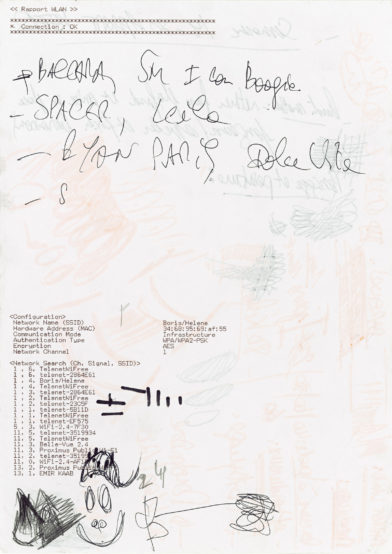 << Rapport WLAN >>
* Connection : OK
BACCARA, Sir I Can Boogie
- SPACER, Leila
- RYAN PARIS, Dolce Vita
- S
<Configuration>
Network Name (SSID) Boris/Helene
Hardware Address (MAC) 34:68:95:69:af:55
Communication Mode Infrastructure
Authentication Type WPA/WPA2-PSK
Encryption AES
Network Channel 1
<Network Search (Ch, Signal, SSID)>
1 . 6. TelenetWiFree
1 . 6. telenet-2864E61
1 . 4. Boris/Helene
1 . 4. TelenetWiFree
1 . 3. telenet-2864E61
1 . 2. TelenetWiFree
1 . 2. telenet-23C9F
1 . 1. telenet-5B11D
1 . 1. TelenetWiFree
1 . 1. telenet-EF575
5 . 3. WiFi-2.4-7F30
11. 5. telenet-3519934
11. 5. TelenetWiFree
11. 3. Belle-Vue 2.4
11. 3. Proximus
11. 2.
11. 0. WiFi-2.4
13. 2. Proximus
13. 1. EMIR KAAB
24